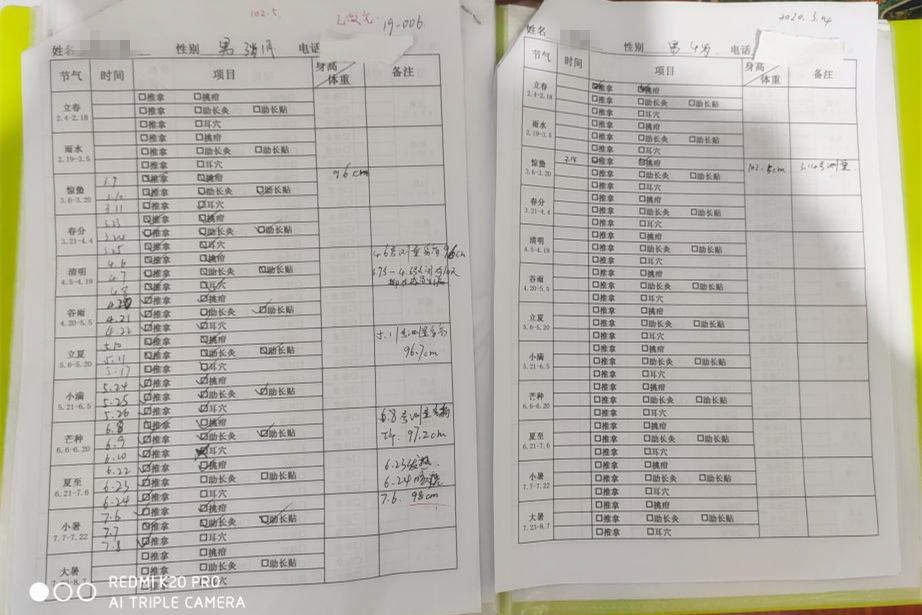 102.5
19-006
姓名 性别 男 电话
节气 时间 项目 身高 体重 备注
立春 2.4-2.18
□推拿 □挑疳
□推拿 □助长灸 □助长贴
□推拿 □耳穴
雨水 2.19-3.5
□推拿 □挑疳
□推拿 □助长灸 □助长贴
□推拿 □耳穴
惊蛰 3.6-3.20
3.9 □推拿 □挑疳 96cm
3.10 □推拿 □助长灸 □助长贴
3.11 □推拿 □耳穴
春分 3.21-4.4
3.23 □推拿 □挑疳
3.24 □推拿 □助长灸 □助长贴
3.25 □推拿 □耳穴
清明 4.5-4.19
4.6 □推拿 □挑疳 4.6号测量身高96cm
4.7 □推拿 □助长灸 □助长贴
4.8 □推拿 □耳穴
谷雨 4.20-5.5
4.20 □推拿 □挑疳
4.21 □推拿 □助长灸 □助长贴
4.22 □推拿 □耳穴
立夏 5.6-5.20
5.10 □推拿 □挑疳 5.11号测量身高
5.11 □推拿 □助长灸 □助长贴 96.7cm
□推拿 □耳穴
小满 5.21-6.5
5.24 □推拿 □挑疳
5.25 □推拿 □助长灸 □助长贴
5.26 □推拿 □耳穴
芒种 6.6-6.20
6.8 □推拿 □挑疳 6.8号测量身高
6.9 □推拿 □助长灸 □助长贴 97.2cm
6.10 □推拿 □耳穴
夏至 6.21-7.6
6.22 □推拿 □挑疳 6.23发热
6.23 □推拿 □助长灸 □助长贴 6.24
6.24 □推拿 □耳穴 7.6. 98cm
小暑 7.7-7.22
7.6 □推拿 □挑疳
7.7 □推拿 □助长灸 □助长贴
7.8 □推拿 □耳穴
大暑
□推拿 □挑疳
□推拿 □助长灸 □助长贴
□推拿 □耳穴
REDMI K20 PRO
AI TRIPLE CAMERA
2020.3.14
姓名 性别 男 4岁 电话
节气 时间 项目 身高 体重 备注
立春 2.4-2.18
□推拿 □挑疳
□推拿 □助长灸 □助长贴
□推拿 □耳穴
雨水 2.19-3.5
□推拿 □挑疳
□推拿 □助长灸 □助长贴
□推拿 □耳穴
惊蛰 3.6-3.20
□推拿 □挑疳 102.5cm 3.14号测量
□推拿 □助长灸 □助长贴
□推拿 □耳穴
春分 3.21-4.4
□推拿 □挑疳
□推拿 □助长灸 □助长贴
□推拿 □耳穴
清明 4.5-4.19
□推拿 □挑疳
□推拿 □助长灸 □助长贴
□推拿 □耳穴
谷雨 4.20-5.5
□推拿 □挑疳
□推拿 □助长灸 □助长贴
□推拿 □耳穴
立夏 5.6-5.20
□推拿 □挑疳
□推拿 □助长灸 □助长贴
□推拿 □耳穴
小满 5.21-6.5
□推拿 □挑疳
□推拿 □助长灸 □助长贴
□推拿 □耳穴
芒种 6.6-6.20
□推拿 □挑疳
□推拿 □助长灸 □助长贴
□推拿 □耳穴
夏至 6.21-7.6
□推拿 □挑疳
□推拿 □助长灸 □助长贴
□推拿 □耳穴
小暑 7.7-7.22
□推拿 □挑疳
□推拿 □助长灸 □助长贴
□推拿 □耳穴
大暑 7.23-8.7
□推拿 □挑疳
□推拿 □助长灸 □助长贴
□推拿 □耳穴